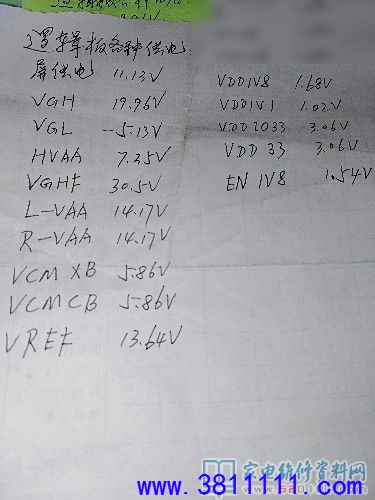 逻辑板各种供电:
屏供电 11.13V
VGH 19.96V
VGL --5.13V
HVAA 7.25V
VGHF 30.5V
L-VAA 14.17V
R-VAA 14.17V
VCM XB 5.86V
VCMCB 5.86V
VREF 13.64V
VDD1V8 1.68V
VDD1V1 1.02V
VDD2033 3.06V
VDD 33 3.06V
EN 1V8 1.54V
家电维修资料网
www.3811111.com